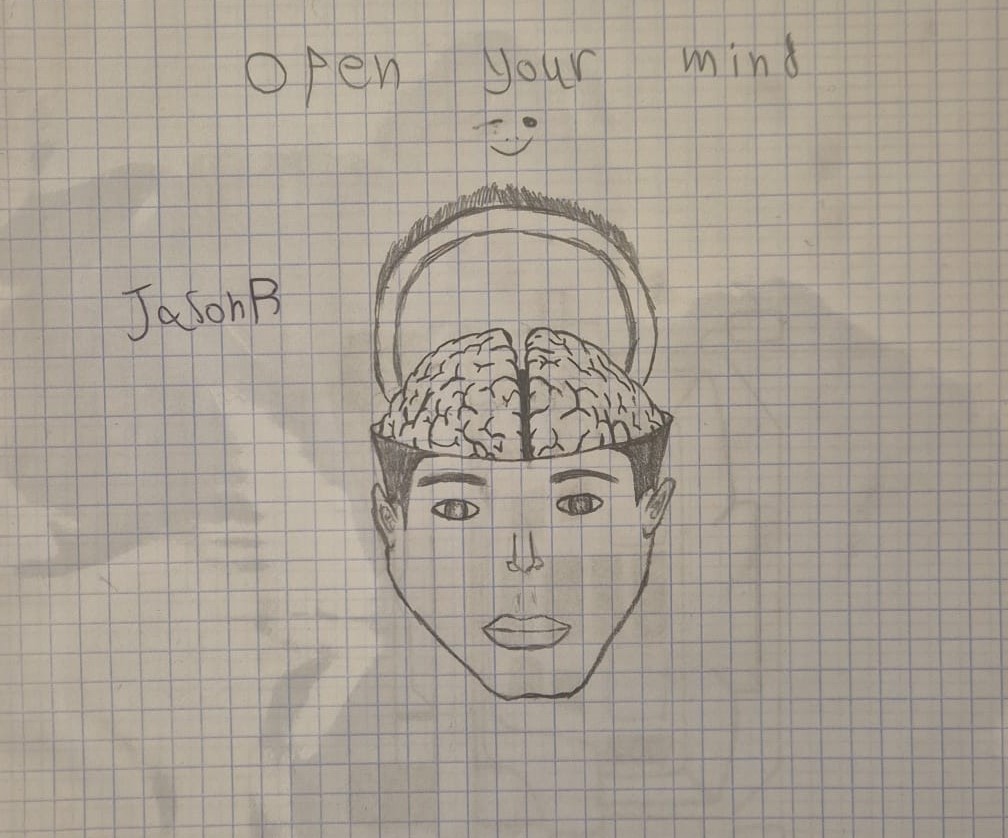 Open your mind
JasonB